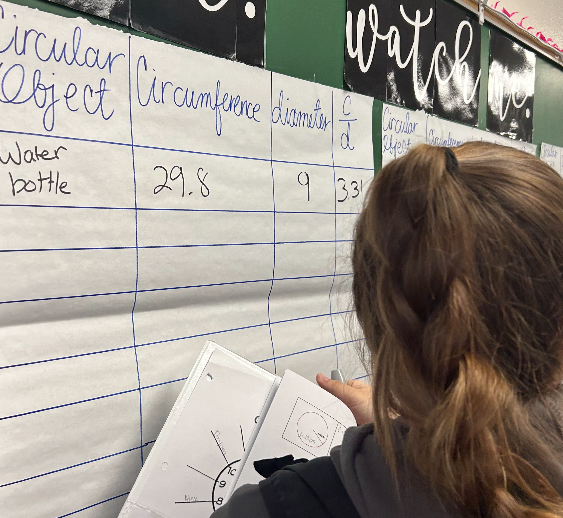 Watch me.
Circular Object
Circumference
diameter
C
d
Water bottle
29.8
9
3.31
Circular
object
10
9
8